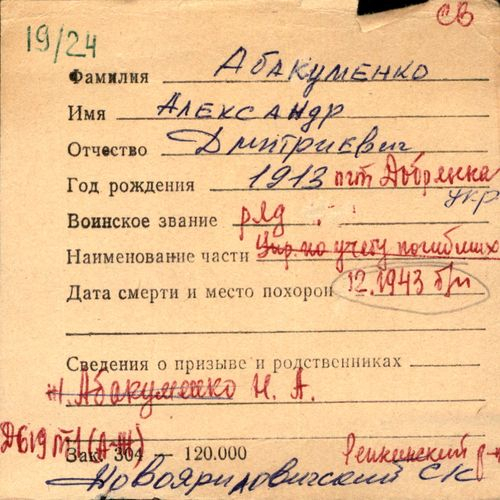 СВ
19/24
Фамилия Абакуменко
Имя Александр
Отчество Дмитриевич
Год рождения 1913 пгт Добрянка
укр
Воинское звание ряд.
Наименование части Упр. по учету погибших
Дата смерти и место похорон 12.1943 б/и
Сведения о призыве и родственниках
ж. Абакуменко Н. А.
Д619 т1 (А-Ж)
Зак. 304 — 120.000 Репкинский р-н
Новояриловичский С/С